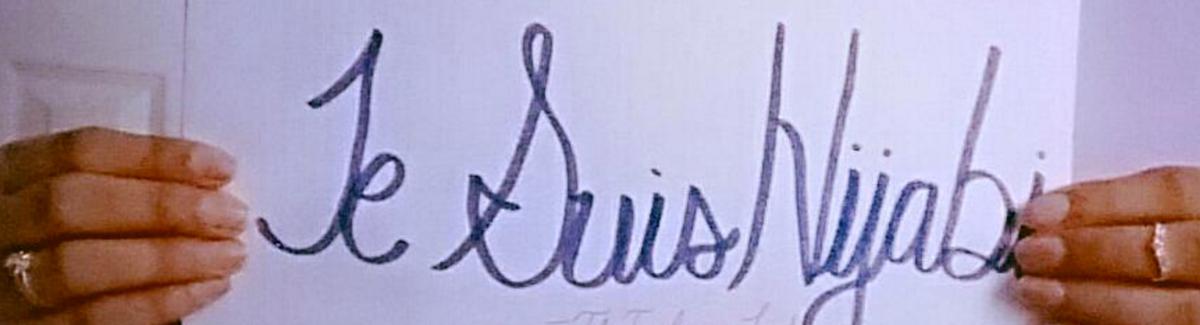 Je Suis Hijabi